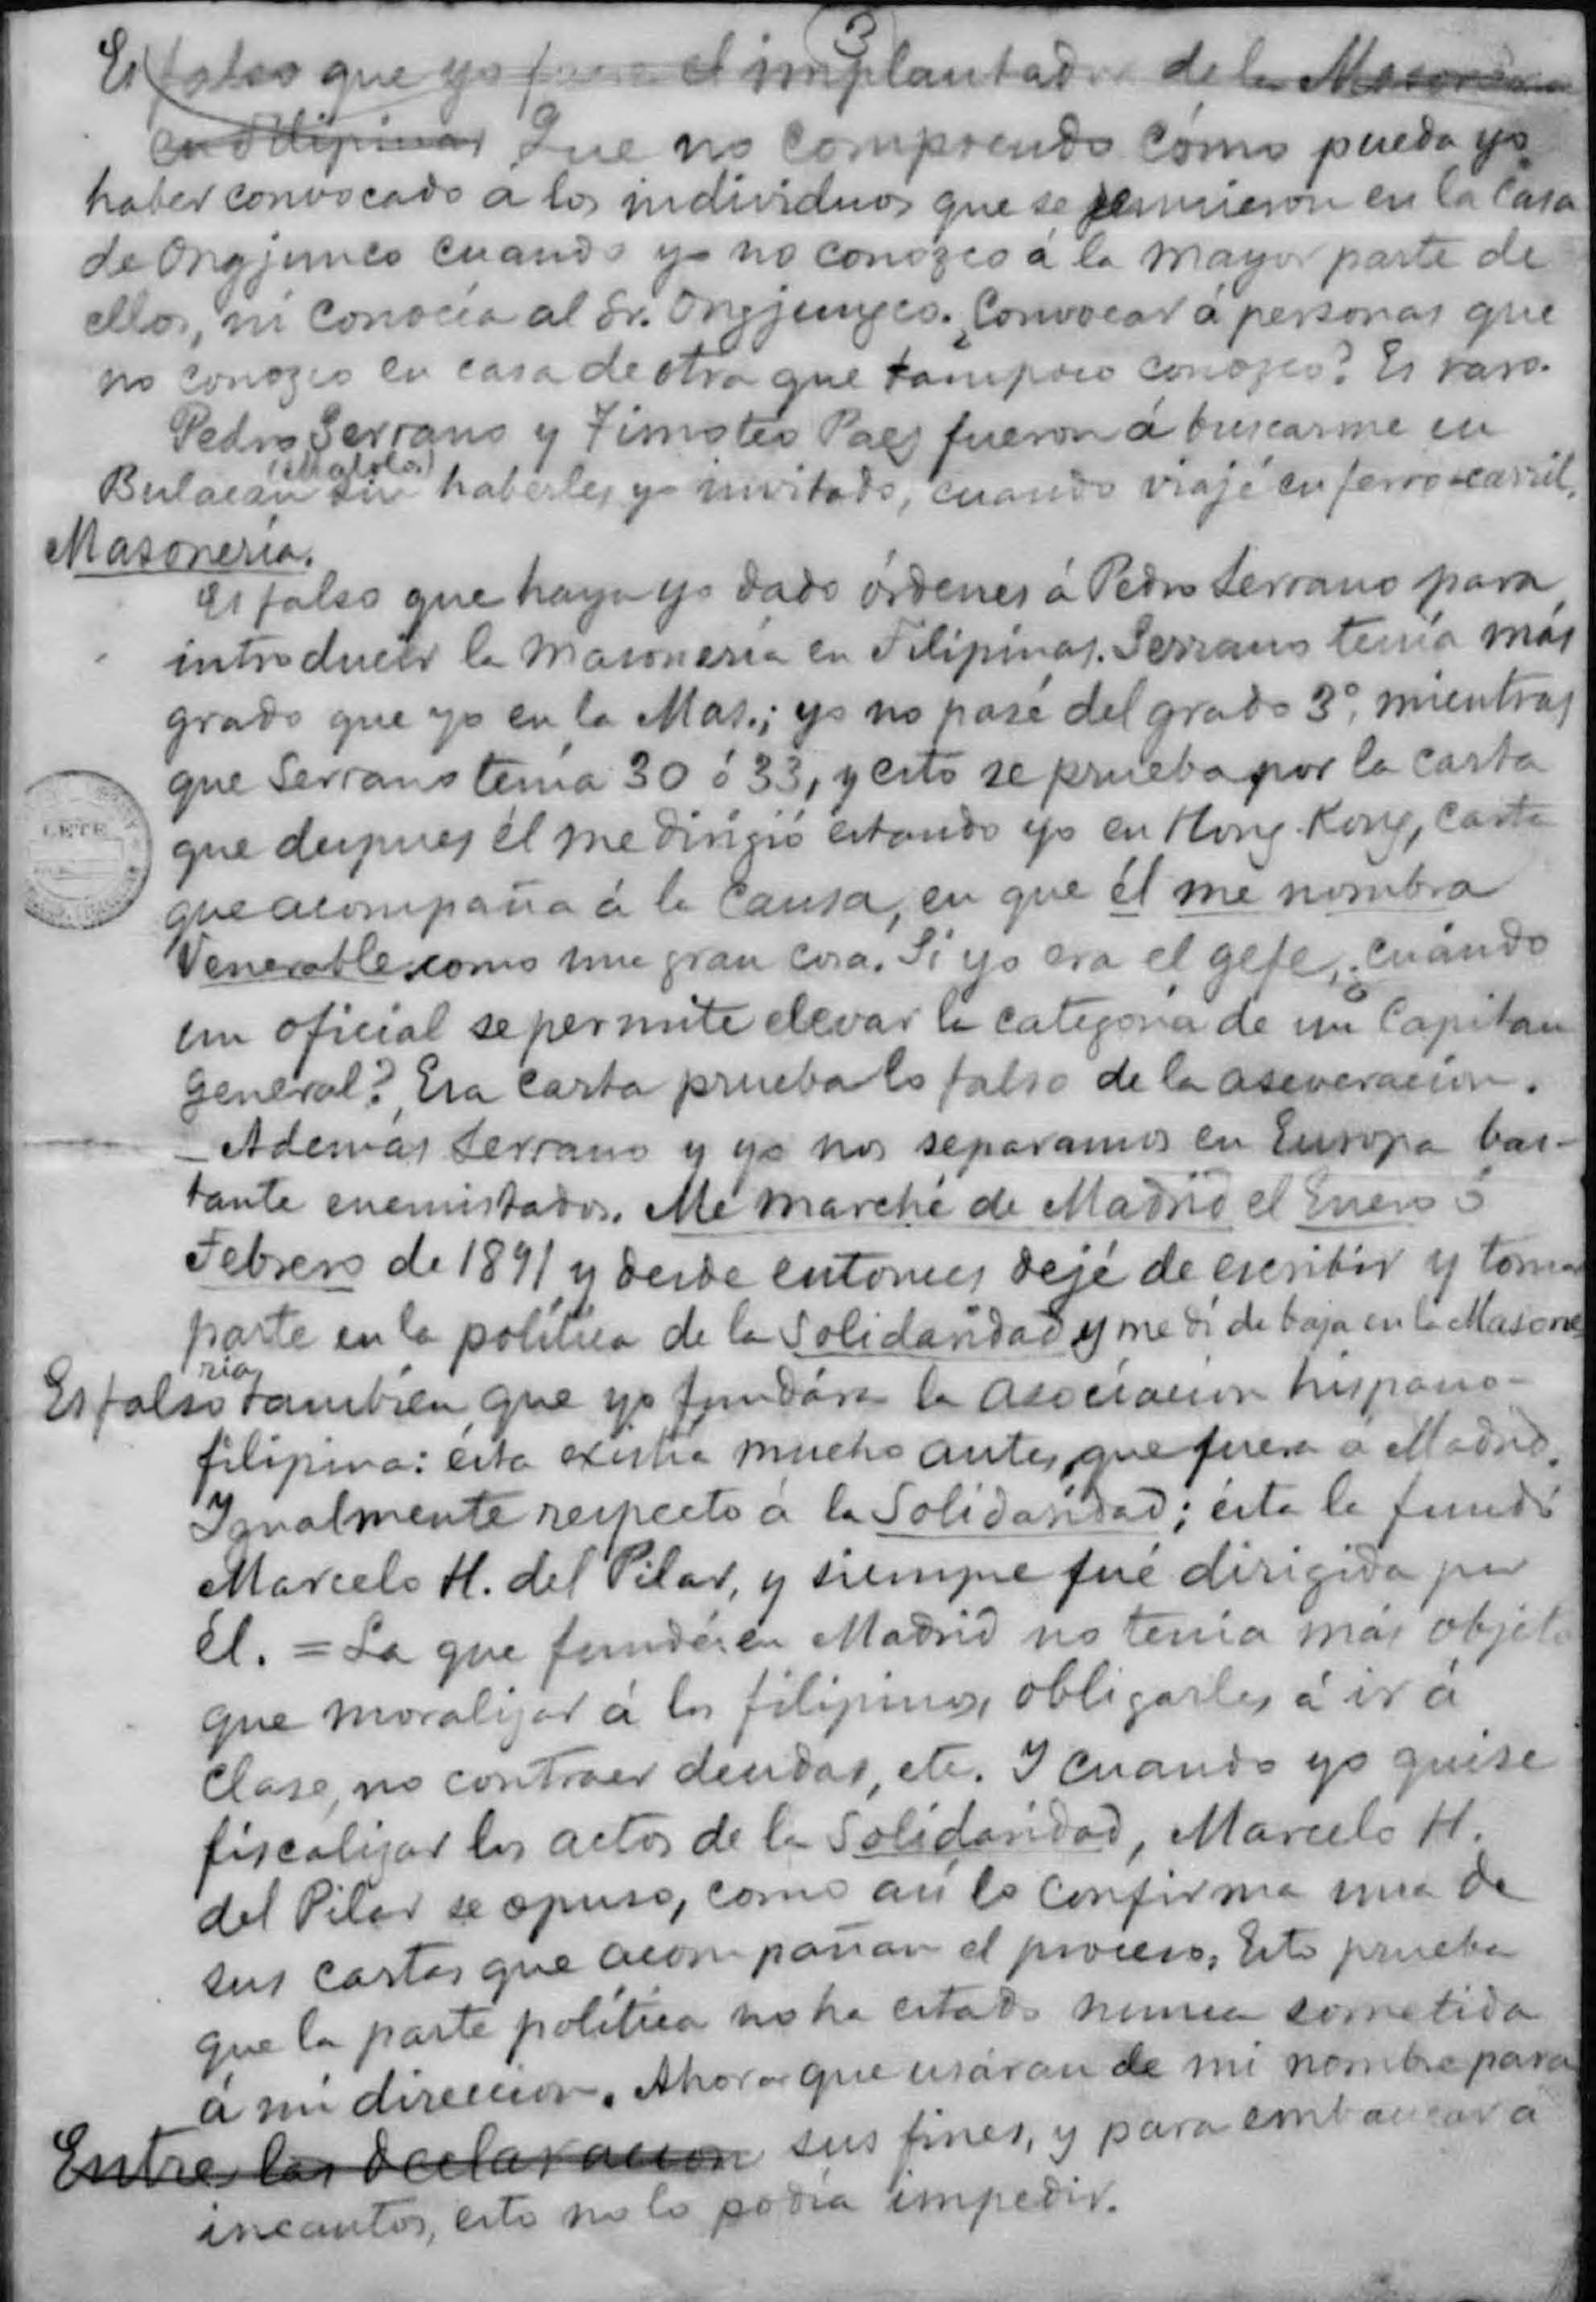 3
Es falso que yo fuera el implantador de la Masonería
en Filipinas Que no comprendo cómo pueda yo
haber convocado á los individuos que se reunieron en la casa
de Ongjunco cuando yo no conozco á la mayor parte de
ellos, ni conocía al Sr. Ongjungco. ¿Convocar á personas que
no conozco en casa de otra que tampoco conozco? Es raro.
Pedro Serrano y Timoteo Paez fueron á buscarme en
(Malolos)
Bulacan sin haberles yo invitado, cuando viajé en ferro-carril.
Masonería.
Es falso que haya yo dado órdenes á Pedro Serrano para
introducir la Masonería en Filipinas. Serrano tenía más
grado que yo en la Mas.; yo no pasé del grado 3º, mientras
que Serrano tenía 30 ó 33, y esto se prueba por la carta
que despues él me dirigió estando yo en Hong-Kong, carta
que acompaña á la causa, en que él me nombra
Venerable como una gran cosa. Si yo era el gefe, ¿cuándo
un oficial se permite elevar la categoría de un Capitan
general? Esa carta prueba lo falso de la aseveracion.
- Además Serrano y yo nos separamos en Europa bas-
tante enemistados. Me marché de Madrid el Enero ó
Febrero de 1891 y desde entonces dejé de escribir y tomar
parte en la política de la Solidaridad y me dí de baja en la Masone
ría
Es falso también que yo fundára la asociacion hispano-
filipina: ésta existía mucho antes que fuera á Madrid.
Igualmente respecto á la Solidaridad; ésta la fundó
Marcelo H. del Pilar, y siempre fué dirigida por
él. = La que fundé en Madrid no tenía más objeto
que moralizar á los filipinos, obligarles á ir á
clase, no contraer deudas, etc. Y cuando yo quise
fiscalizar los actos de la Solidaridad, Marcelo H.
del Pilar se opuso, como así lo confirma una de
sus cartas que acompañan el proceso. Esto prueba
que la parte política no ha estado nunca sometida
á mi direccion. Ahora que usáran de mi nombre para
Entre las declaracion sus fines, y para embaucar á
incautos, esto no lo podía impedir.